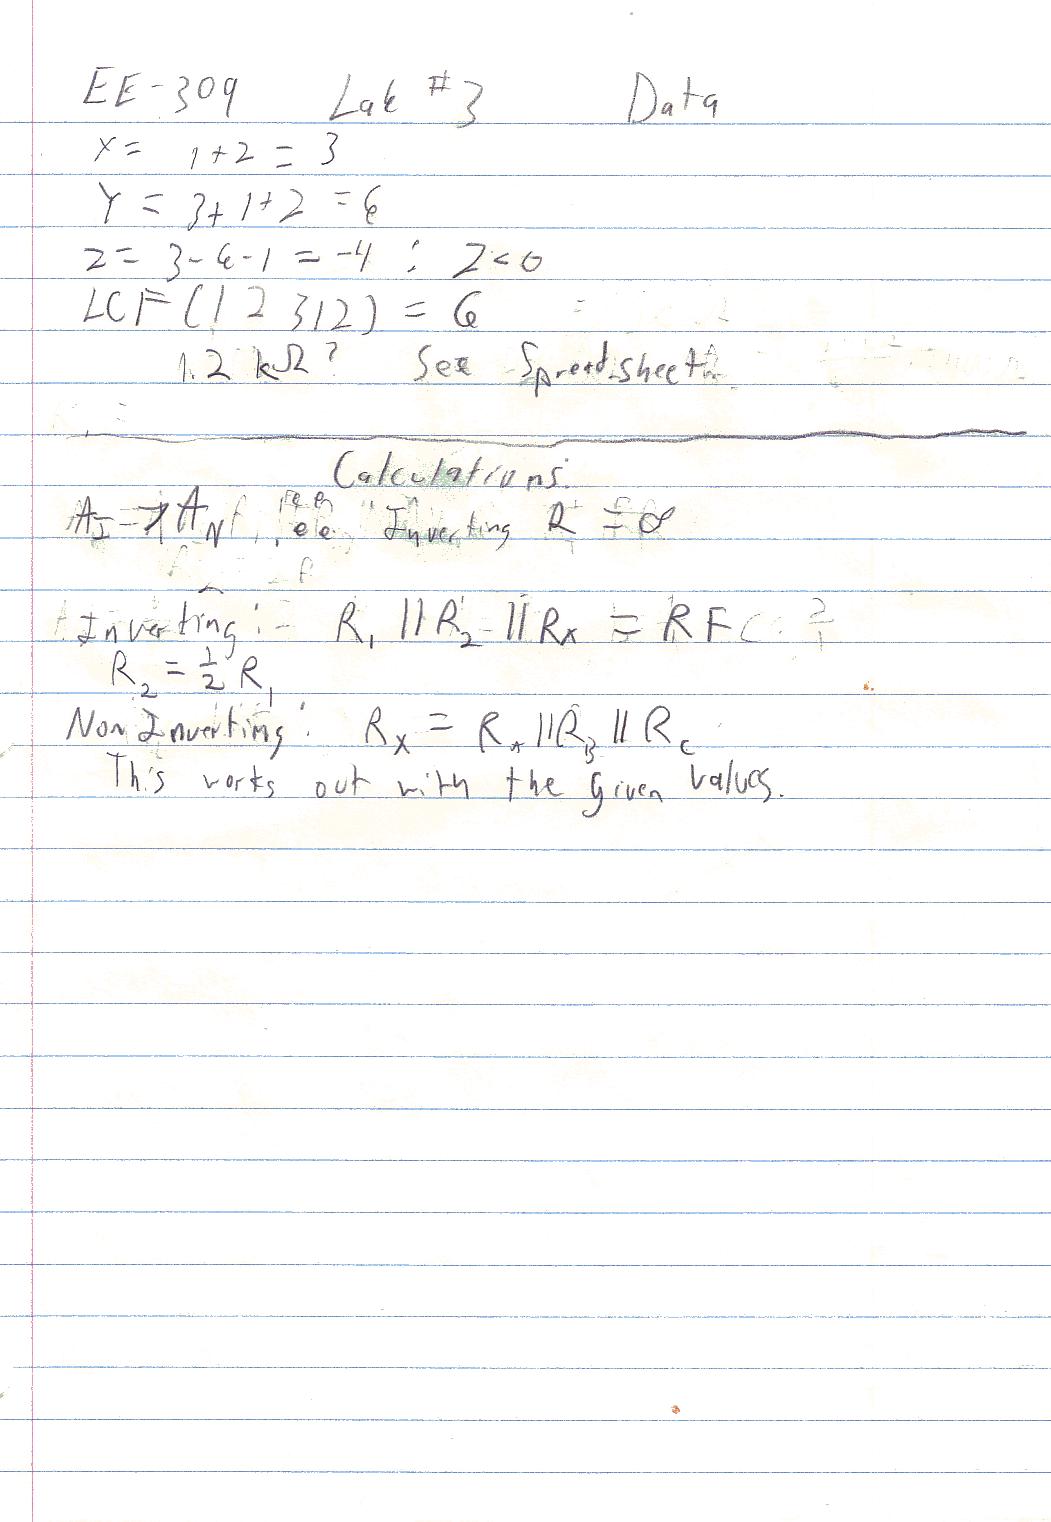 EE-309 Lab #3 Data
X = 1+2 = 3
Y = 3+1+2 = 6
Z = 3-6-1 = -4 ; Z<0
LCF(1 2 3 1 2) = 6
1.2 kΩ? See Spreadsheet
Calculations:
Inverting R = ∞
Inverting: R₁ || R₂ || Rx = RF
R₂ = ½ R₁
Non Inverting: Rx = RA || RB || Rc
This works out with the given values.